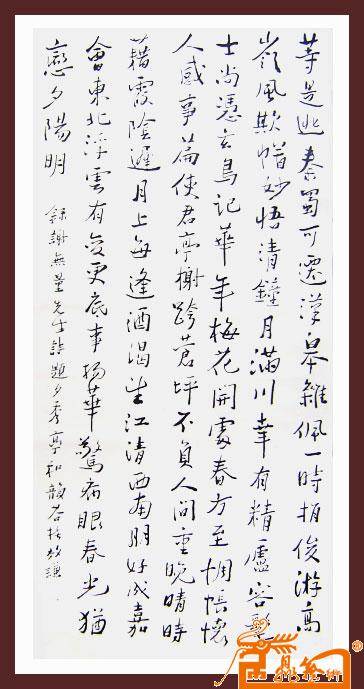 等是逃秦蜀可遷漢皋雜佩一時捐俊游高
嶺風欺帽妙悟清鐘月滿川幸有精廬容髡
士尚憑玄鳥記華年梅花開處春方至惆悵懷
人感事篇使君亭榭跨蒼坪不負人間重晚晴時
藉霞陰遲月上每逢酒渴坐江清西南朋好成嘉
會東北浮雲有變更底事楊華驚病眼春光猶
戀夕陽明
錄謝無量先生詩題夕秀亭和韻